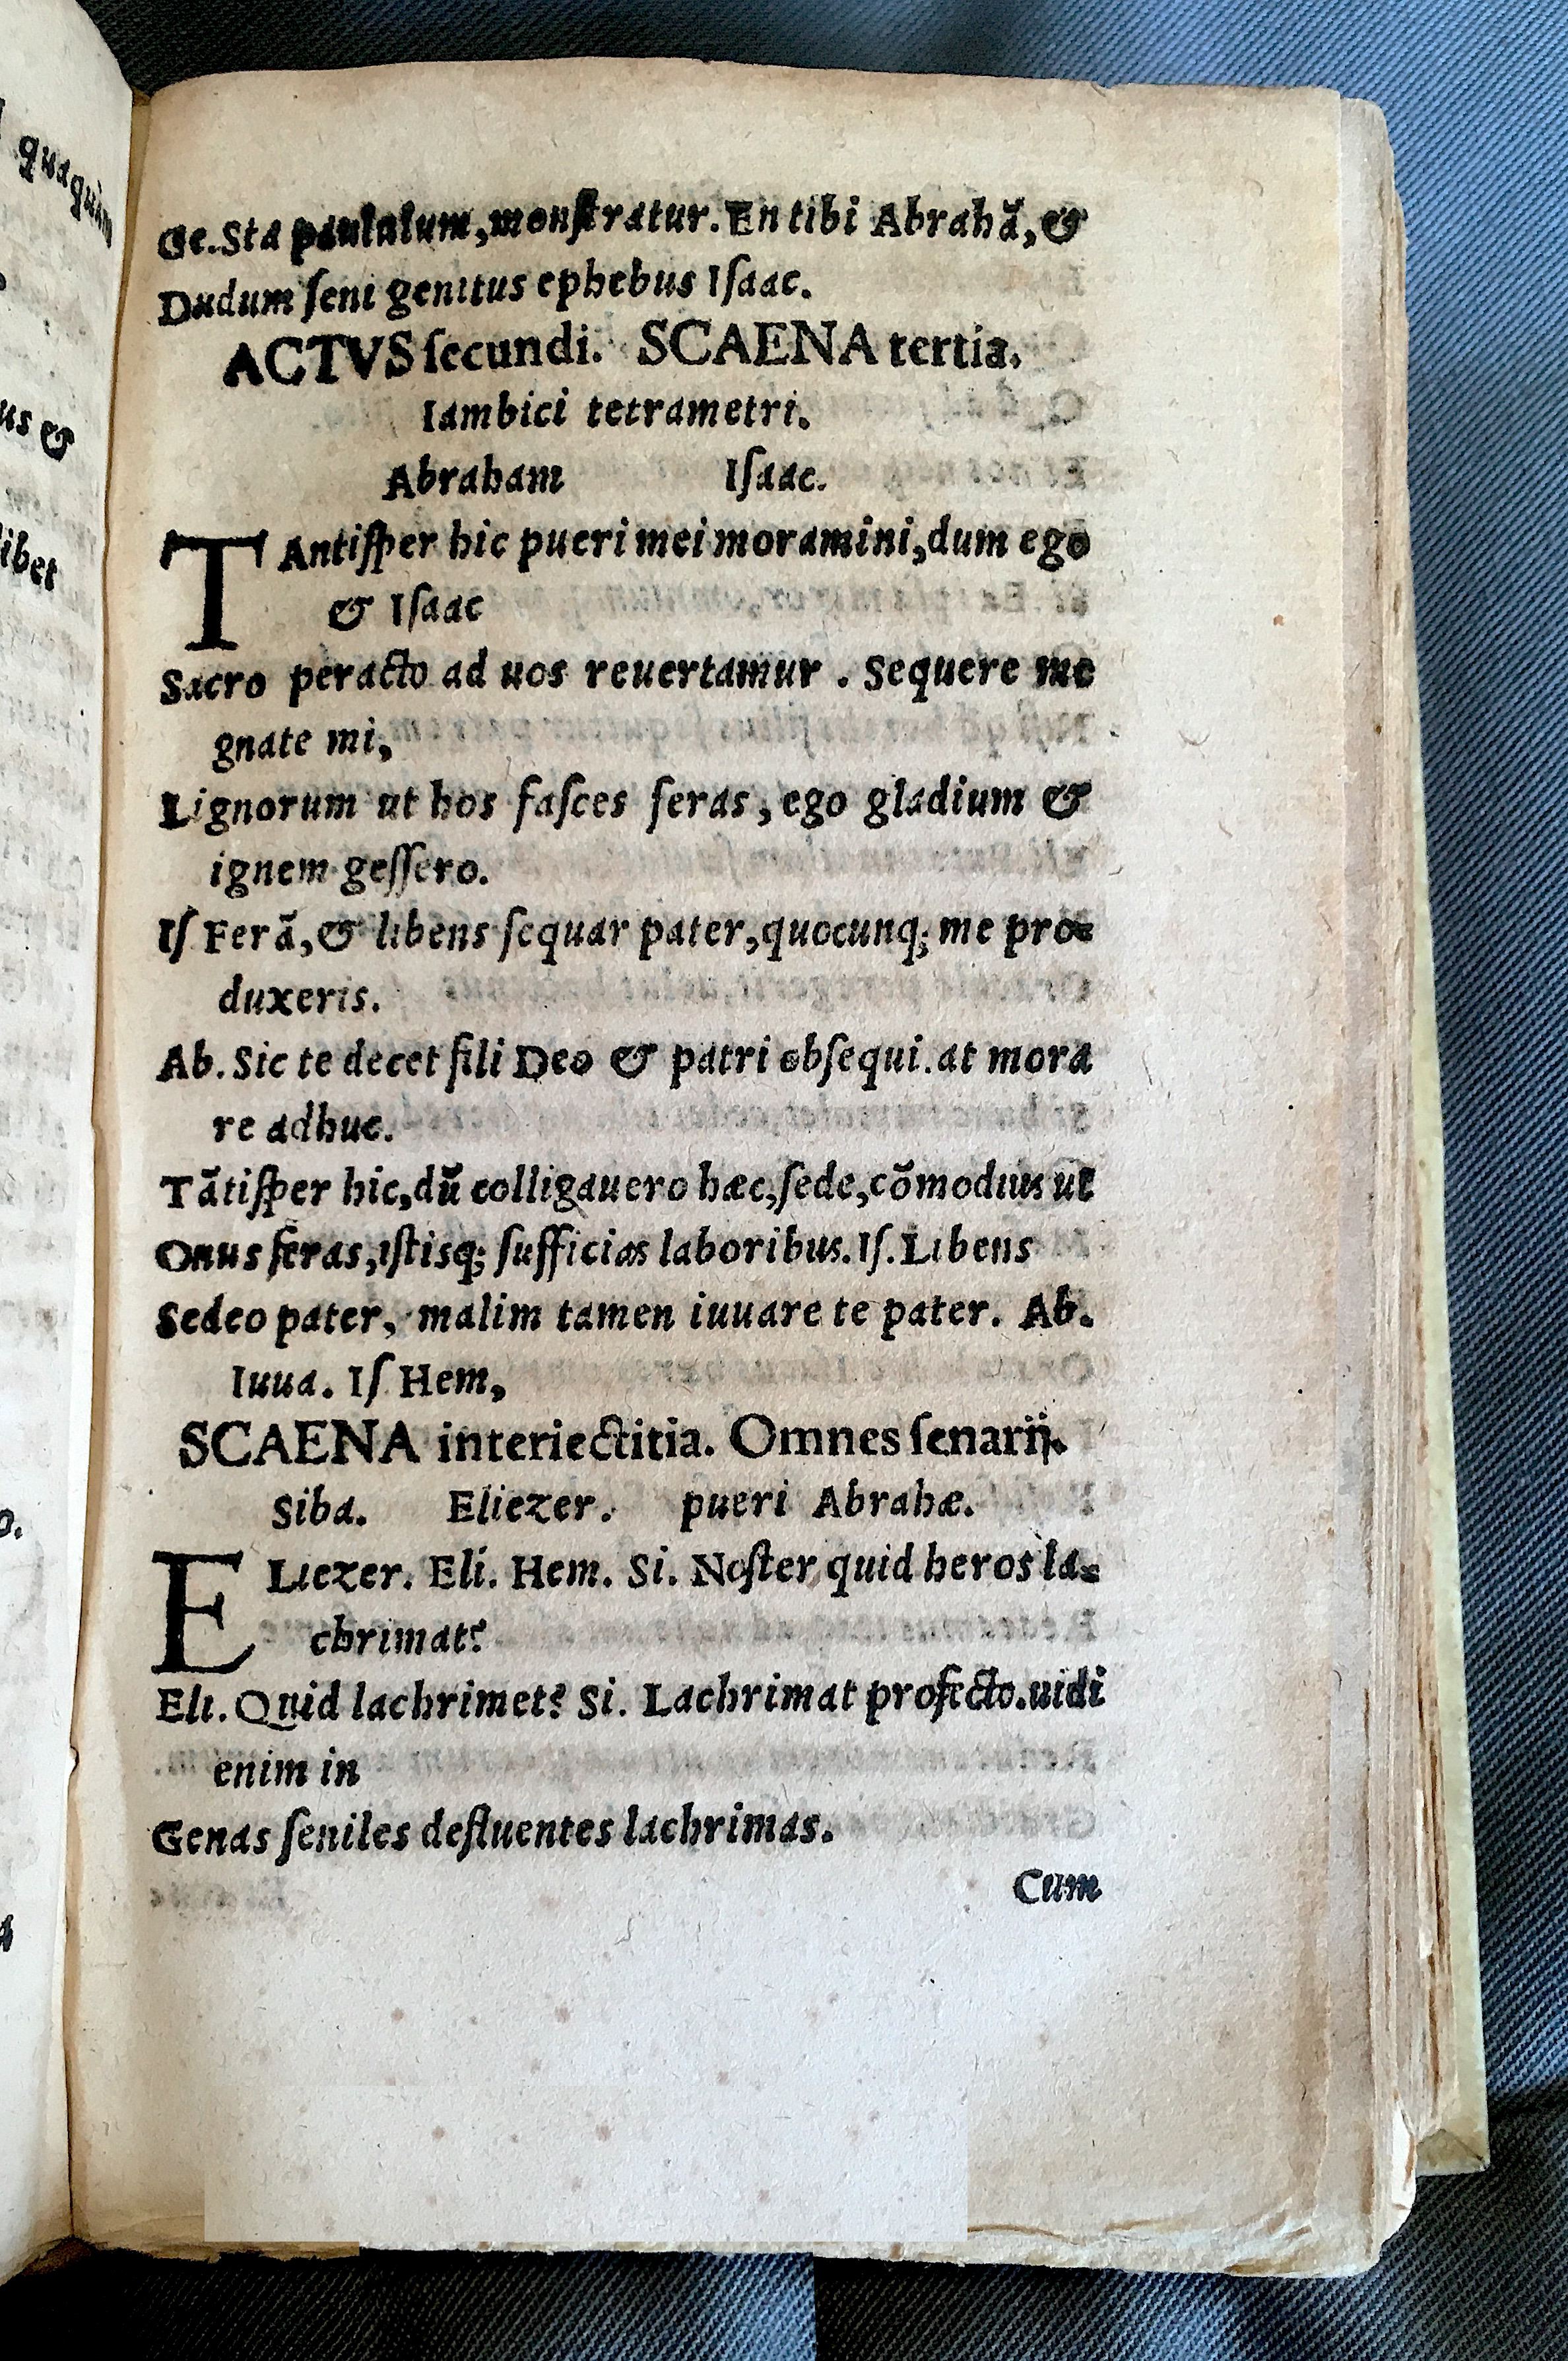 Ge. Sta paululum, monſtratur. En tibi Abrahã, &
Dudum ſeni genitus ephebus Iſaac.
ACTVS ſecundi. SCAENA tertia.
Iambici tetrametri.
Abraham Iſaac.
TAntiſper hic pueri mei moramini, dum ego
& Iſaac
Sacro peracto ad uos reuertamur. Sequere me
gnate mi,
Lignorum ut hos faſces feras, ego gladium &
ignem geſſero.
Iſ Ferã, & libens ſequar pater, quocunq; me pro=
duxeris.
Ab. Sic te decet fili Deo & patri obſequi. at mora
re adhuc.
Tãtiſper hic, dũ colligauero hæc, ſede, cõmodius ut
Onus feras, iſtisq; ſufficias laboribus. Iſ. Libens
Sedeo pater, malim tamen iuuare te pater. Ab.
Iuua. Iſ Hem,
SCAENA interiectitia. Omnes ſenarij.
Siba. Eliezer. pueri Abrahæ.
ELiezer. Eli. Hem. Si. Noſter quid heros la=
chrimat?
Eli. Quid lachrimet? Si. Lachrimat profecto. uidi
enim in
Genas ſeniles defluentes lachrimas.
Cum